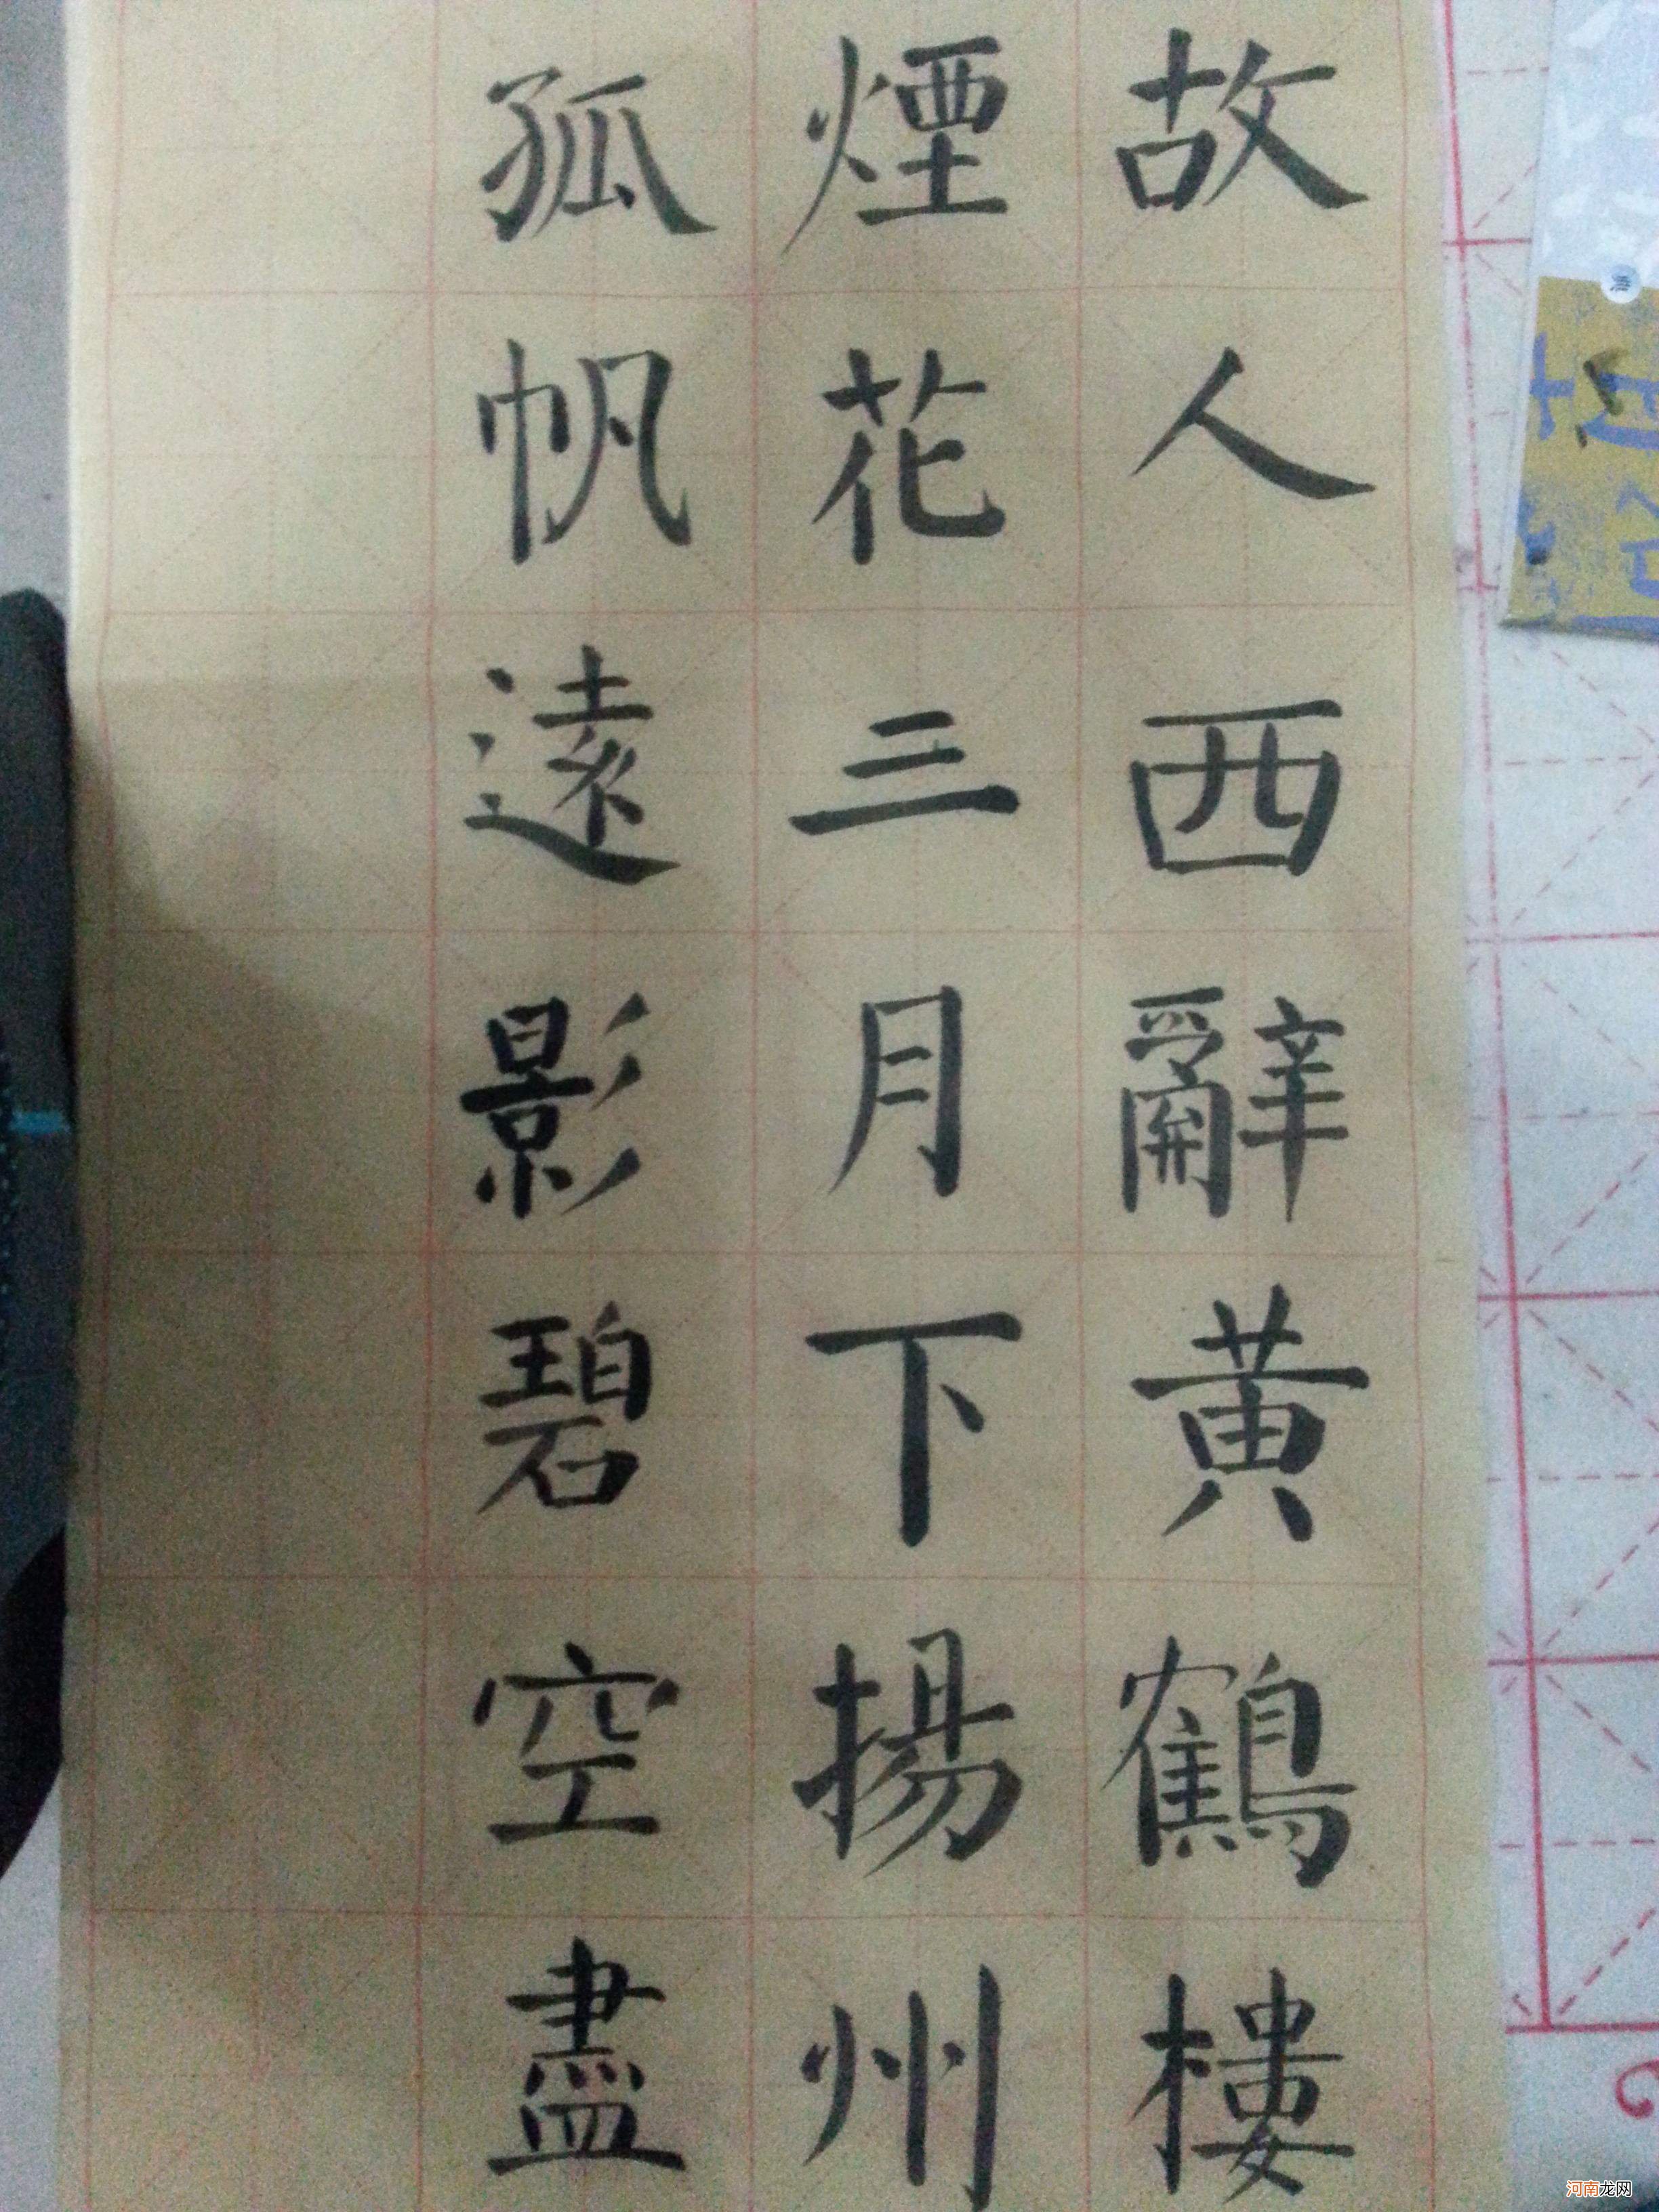 故人西辭黃鶴樓
煙花三月下揚州
孤帆遠影碧空盡
河南龙网